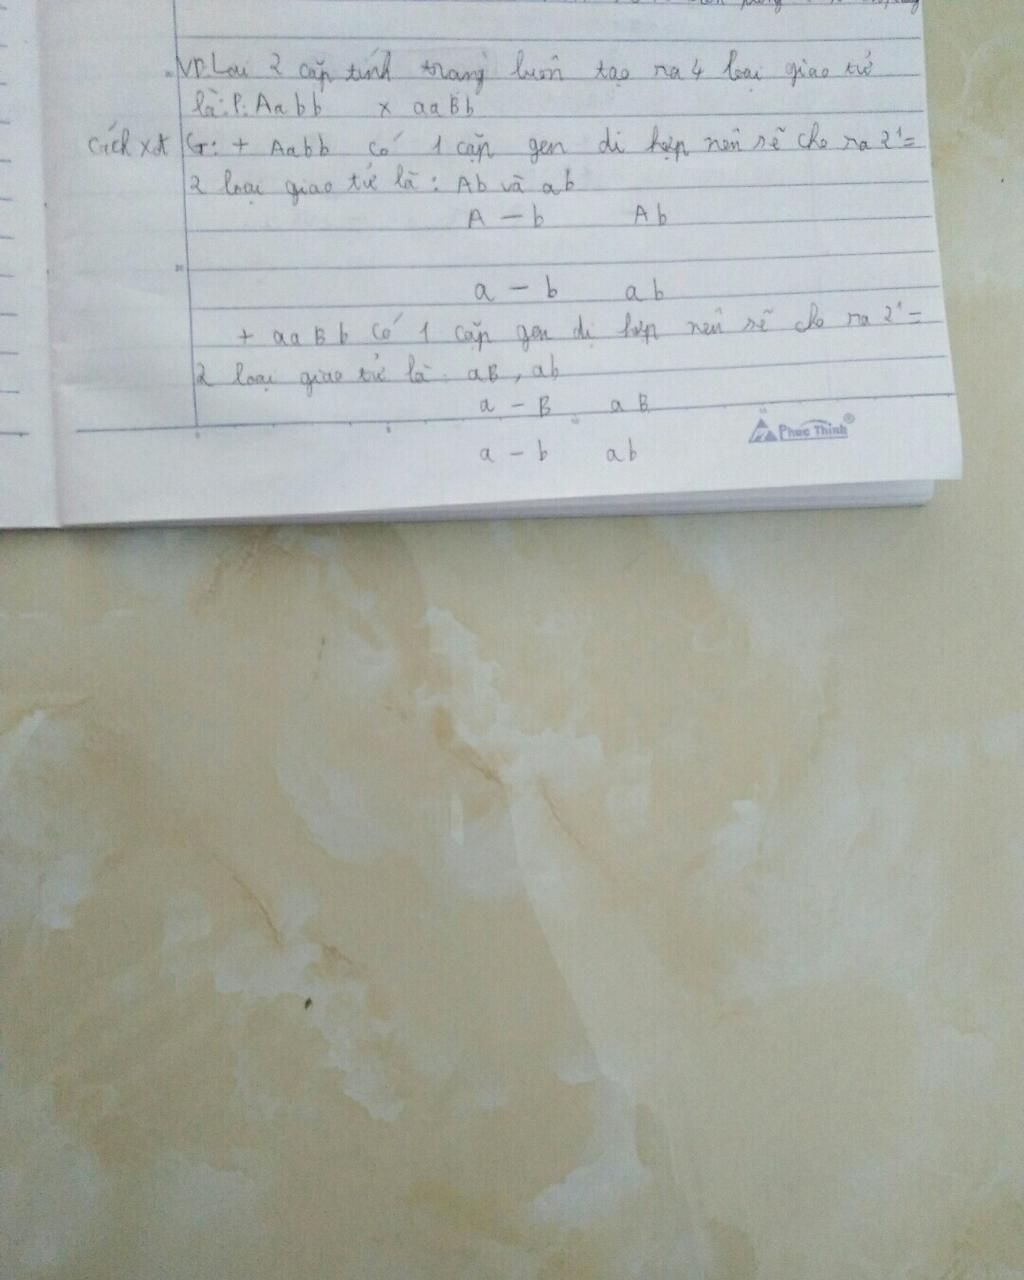 VD Lai 2 cặp tính trạng luôn tạo ra 4 loại giao tử
là: P: Aabb x aaBb
Cách xđ G: + Aabb có 1 cặp gen dị hợp nên sẽ cho ra 2¹ =
2 loại giao tử là: Ab và ab
A - b Ab
a - b ab
+ aaBb có 1 cặp gen dị hợp nên sẽ cho ra 2¹ =
2 loại giao tử là: aB, ab
a - B aB
Phuc Thinh®
a - b ab